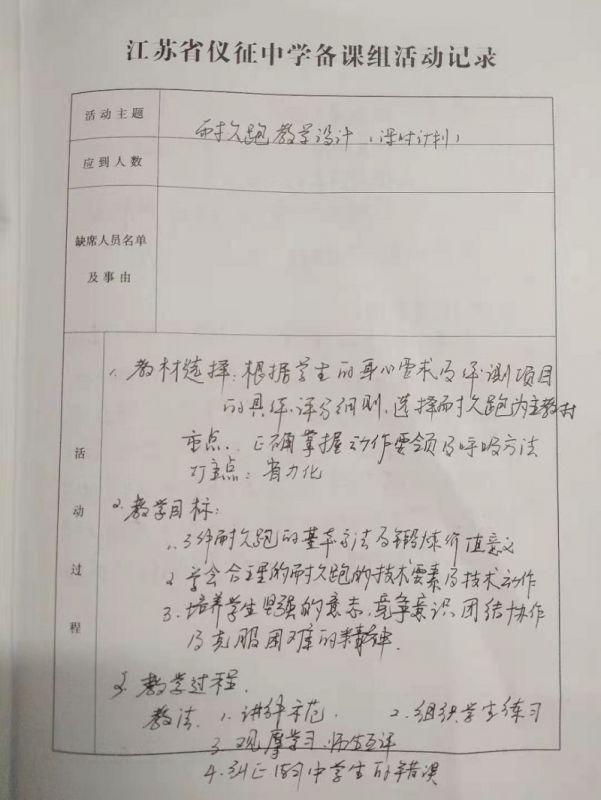 江苏省仪征中学备课组活动记录
活动主题
耐久跑教学设计（课时计划）
应到人数
缺席人员名单
及事由
活动过程
1. 教材选择：根据学生的身心需求及体测项目
的具体评分细则，选择耐久跑为主教材
重点：正确掌握动作要领及呼吸方法
难点：省力化
2. 教学目标：
1. 了解耐久跑的基本方法及锻炼价值意义
2. 学会合理的耐久跑的技术要素及技术动作
3. 培养学生坚强的意志、竞争意识、团结协作
及克服困难的精神.
3. 教学过程.
教法. 1. 讲解示范. 2. 组织学生练习
3. 观摩学习.师生互评
4. 纠正 中学生的错误